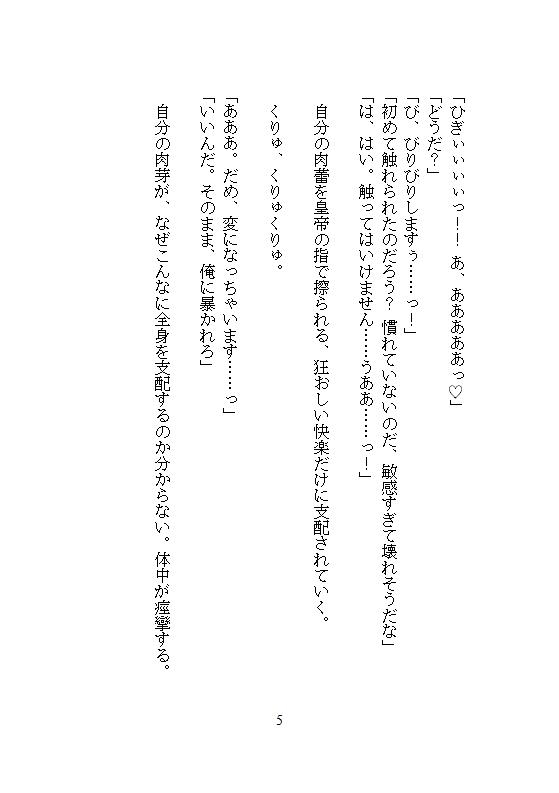 「ひぎぃぃぃぃっ！！　あ、あああああっ♡」
「どうだ？」
「び、びりびりしますぅ……っ！」
「初めて触れられたのだろう？　慣れていないのだ、敏感すぎて壊れそうだな」
「は、はい。触ってはいけません……うああ……っ！」
自分の肉蕾を皇帝の指で擦られる、狂おしい快楽だけに支配されていく。
くりゅ、くりゅくりゅ。
「あああ。だめ、変になっちゃいます……っ」
「いいんだ。そのまま、俺に暴かれろ」
自分の肉芽が、なぜこんなに全身を支配するのか分からない。体中が痙攣する。
5